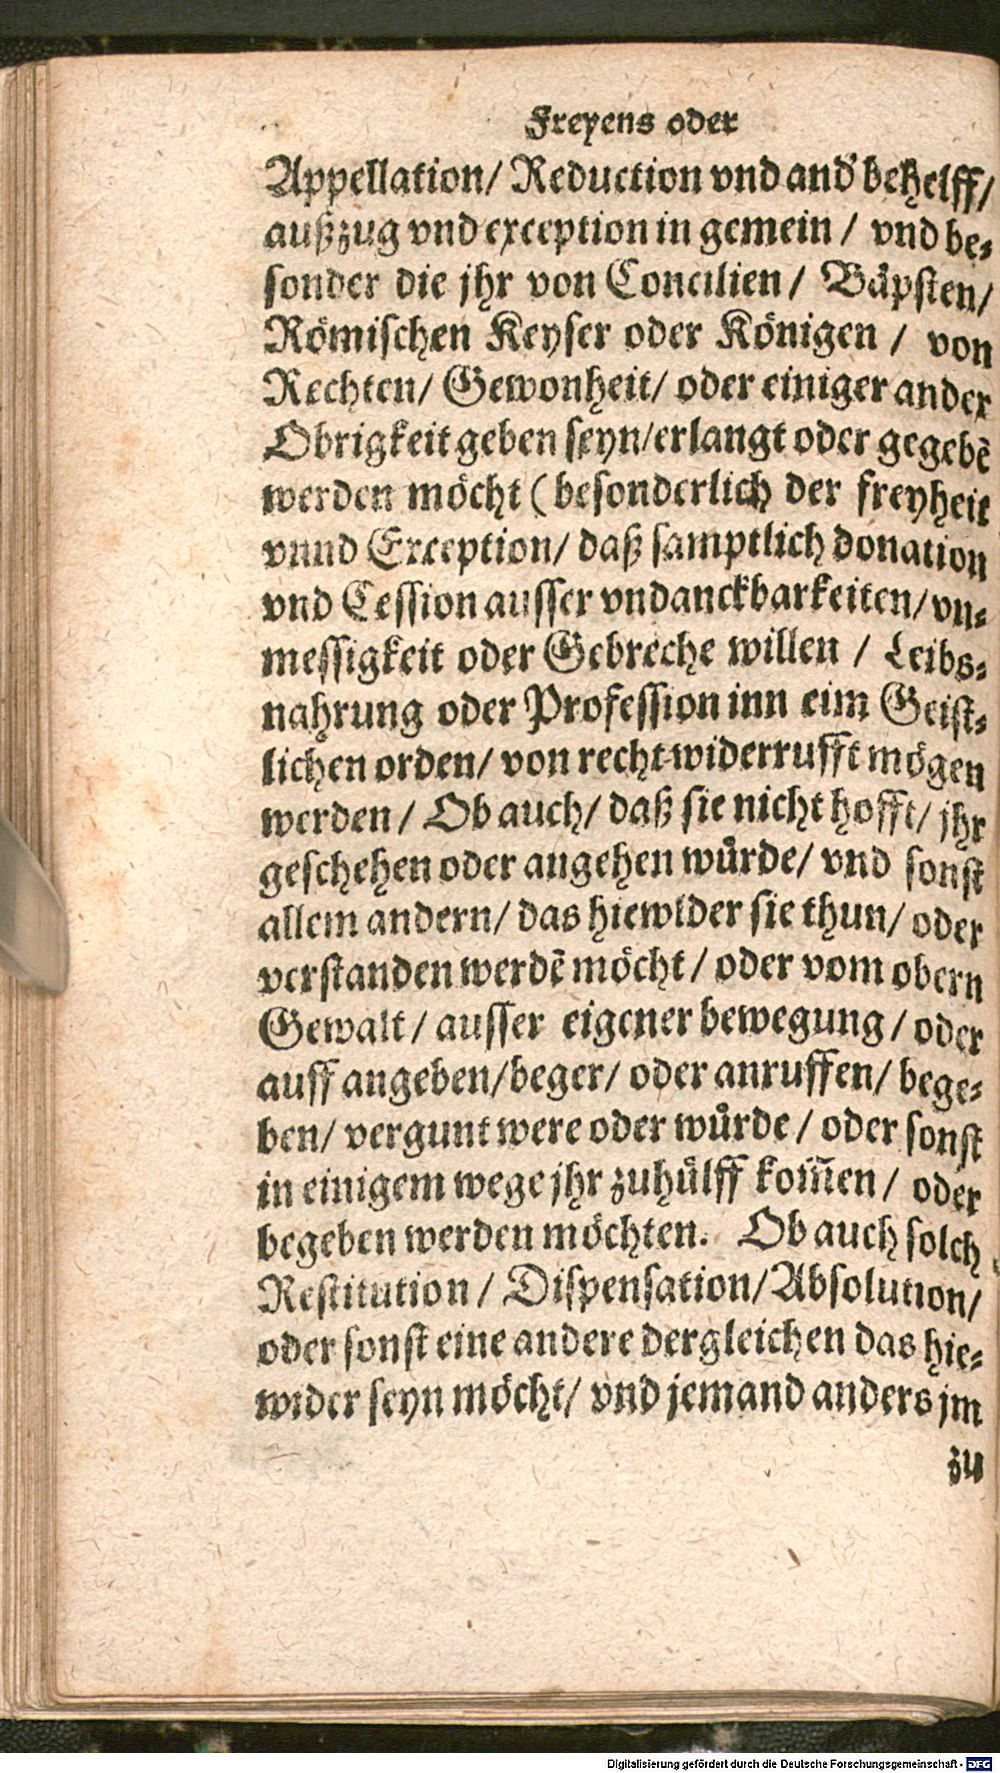 Freyens oder
Appellation/ Reduction vnd and̕ behelff/
außzug vnd exception in gemein / vnd be⸗
sonder die jhr von Concilien / Bäpsten/
Römischen Keyser oder Königen / von
Rechten/ Gewonheit/ oder einiger ander
Obrigkeit geben seyn/erlangt oder gegebē
werden möcht ( besonderlich der freyheit
vnnd Exception/ daß samptlich donation
vnd Cession ausser vndanckbarkeiten/ vn⸗
messigkeit oder Gebreche willen / Leibs⸗
nahrung oder Profession inn eim Geist⸗
lichen orden/ von recht widerrufft mögen
werden / Ob auch/ daß sie nicht hofft/ jhr
geschehen oder angehen wuͤrde/ vnd sonst
allem andern/ das hiewider sie thun/ oder
verstanden werdē möcht / oder vom obern
Gewalt / ausser eigener bewegung / oder
auff angeben/beger/ oder anruffen/ bege⸗
ben/ vergunt were oder wuͤrde / oder sonst
in einigem wege jhr zuhülff kom̃en / oder
begeben werden möchten. Ob auch solch
Restitution / Dispensation/Absolution/
oder sonst eine andere dergleichen das hie⸗
wider seyn möcht/ vnd jemand anders jm
zu
Digitalisierung gefördert durch die Deutsche Forschungsgemeinschaft - DFG